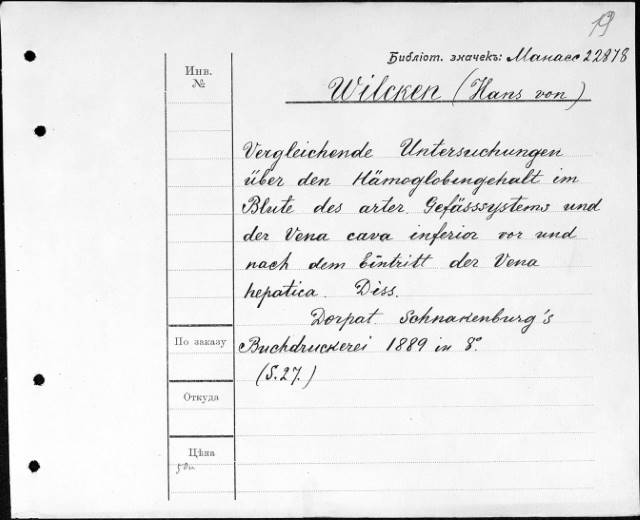 19
Библіот. значекъ: Манасс 22878
Инв.
№
Wilcken (Hans von)
Vergleichende Untersuchungen
über den Hämoglobingehalt im
Blute des arter. Gefässsystems und
der Vena cava inferior vor und
nach dem Eintritt der Vena
hepatica. Diss.
Dorpat. Schnakenburg's
По заказу
Buchdruckerei 1889 in 8°.
(S. 27.)
Откуда
Цѣна